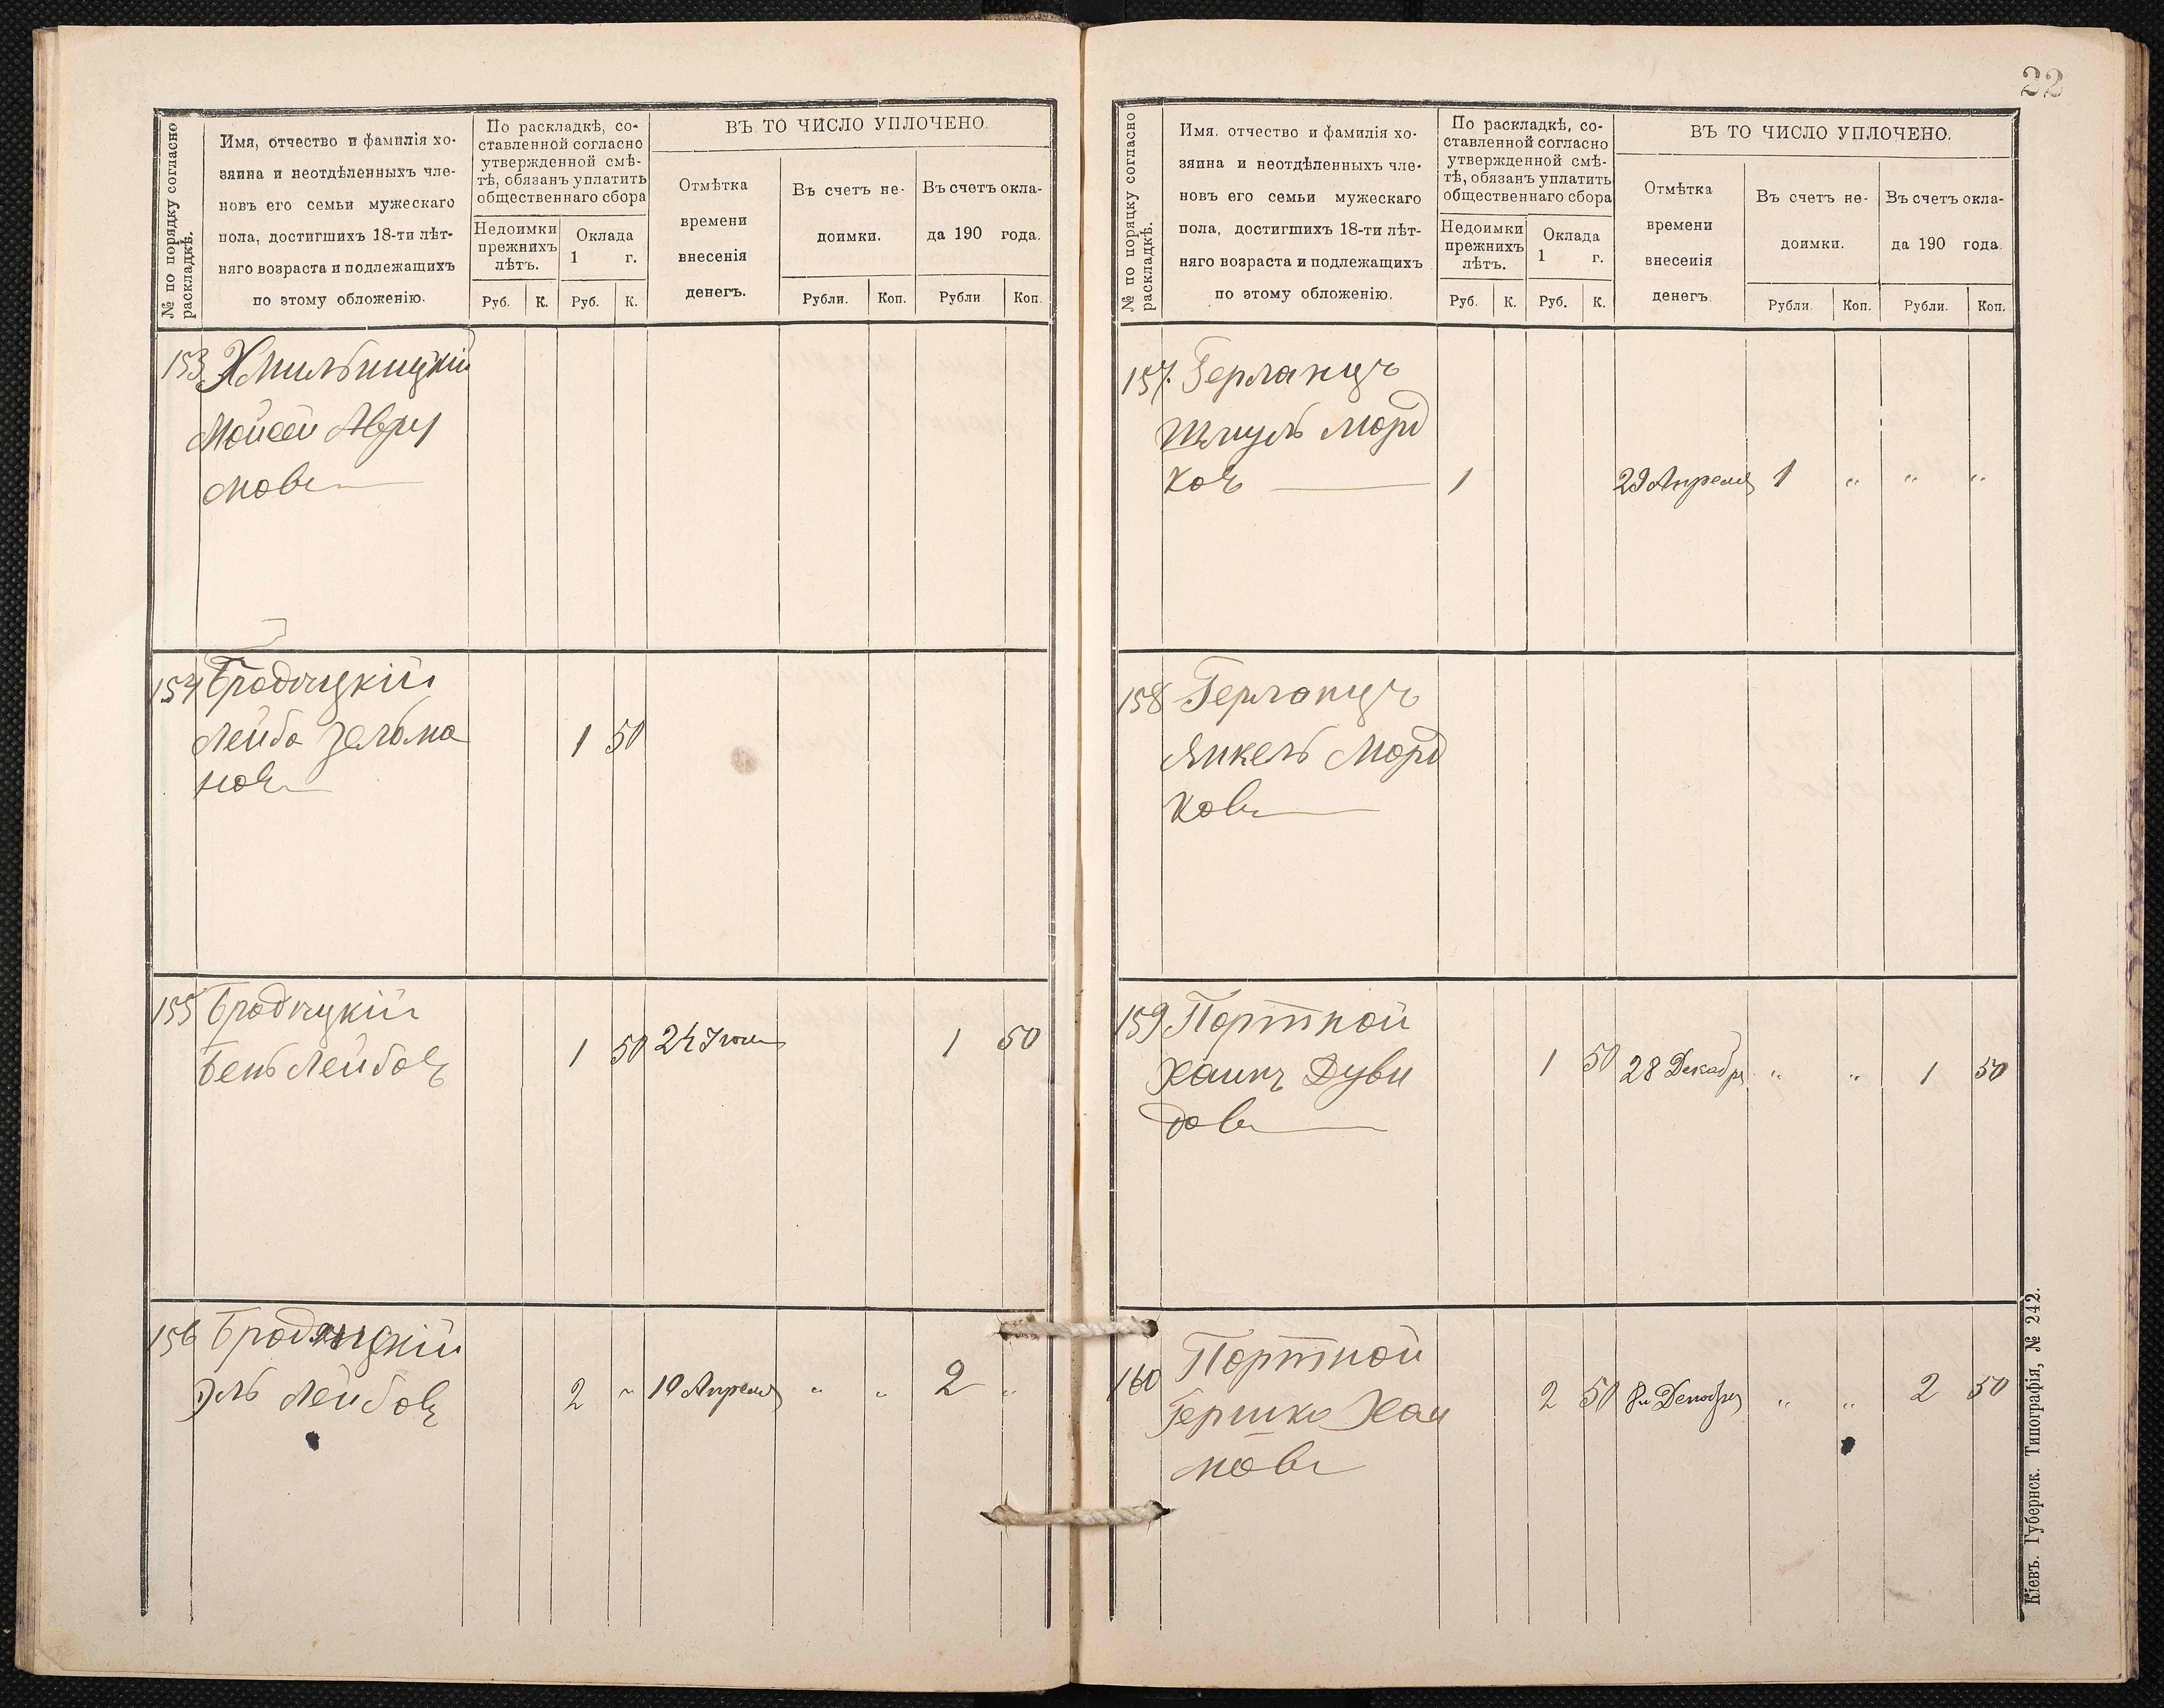 № по порядку согласно
раскладкѣ.
Имя, отчество и фамилія хо-
зяина и неотдѣленныхъ чле-
новъ его семьи мужескаго
пола, достигшихъ 18-ти лѣт-
няго возраста и подлежащихъ
по этому обложенію.
По раскладкѣ, со-
ставленной согласно
утвержденной смѣ-
тѣ, обязанъ уплатить
общественнаго сбора
Недоимки
прежнихъ
лѣтъ.
Оклада
1 г.
Руб. К. Руб. К.
ВЪ ТО ЧИСЛО УПЛОЧЕНО.
Отмѣтка
времени
внесенія
денегъ.
Въ счетъ не-
доимки.
Въ счетъ окла-
да 190 года.
Рубли. Коп. Рубли Коп.
153 Хмильницкій
Мойсей Авру
мовъ
154 Бродицкій
Лейба Зельма
новъ
1 50
155 Бродицкій
Бень Лейбовъ
1 50 24 Іюня 1 50
156 Бродицкій
Эль Лейбовъ
2 " 19 Апреля " " 2 "
22
№ по порядку согласно
раскладкѣ.
Имя. отчество и фамилія хо-
зяина и неотдѣленныхъ чле-
новъ его семьи мужескаго
пола, достигшихъ 18-ти лѣт-
няго возраста и подлежащихъ
по этому обложенію.
По раскладкѣ, со-
ставленной согласно
утвержденной смѣ-
тѣ, обязанъ уплатить
общественнаго сбора
Недоимки
прежнихъ
лѣтъ.
Оклада
1 г.
Руб. К. Руб. К.
ВЪ ТО ЧИСЛО УПЛОЧЕНО.
Отмѣтка
времени
внесенія
денегъ.
Въ счетъ не-
доимки.
Въ счетъ окла-
да 190 года.
Рубли. Коп. Рубли. Коп.
157. Герланцъ
Шмуль Морд
ковъ
1 29 Апреля 1 " " "
158 Герланцъ
Янкель Морд
ковъ
159 Портной
Хаимъ Дуви
довъ
1 50 28 Декабря " " 1 50
160 Портной
Гершко Хаи
мовъ
2 50 8го Декабря " " 2 50
Кіевъ. Губернск. Типографія, № 242.